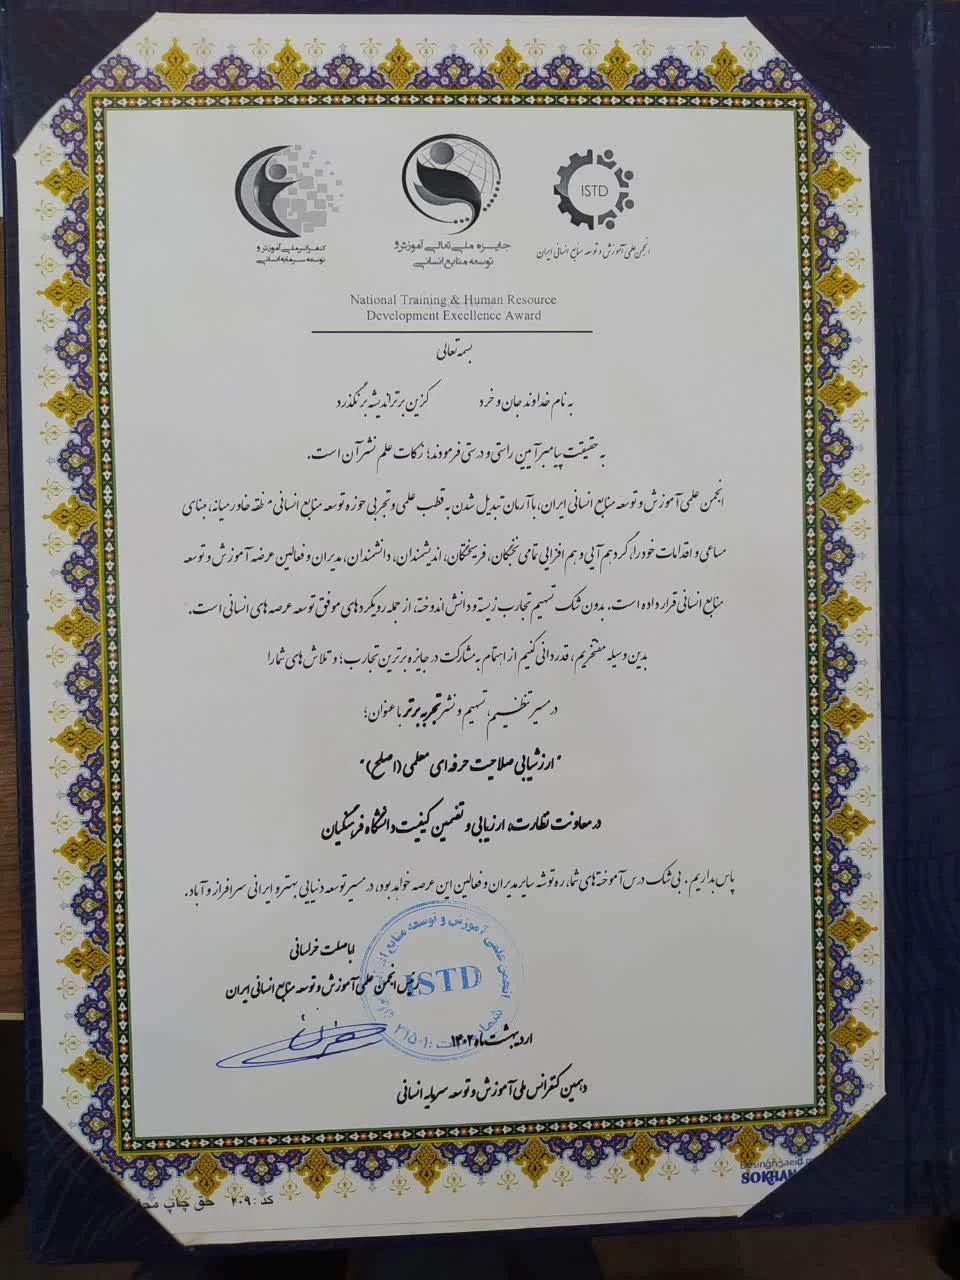 ISTD
انجمن علمی آموزش و توسعه منابع انسانی ایران
جایزه ملی تعالی آموزش و
توسعه منابع انسانی
کنفرانس ملی آموزش و
توسعه سرمایه انسانی
National Training & Human Resource
Development Excellence Award
بسمه تعالی
به نام خداوند جان و خرد کزین برتر اندیشه برنگذرد
به حقیقت پیامبر آیین راستی و درستی فرمودند؛ زکات علم نشر آن است.
انجمن علمی آموزش و توسعه منابع انسانی ایران، با آرمان تبدیل شدن به قطب علمی و تجربی حوزه توسعه منابع انسانی منطقه خاورمیانه، مبنای
مساعی و اقدامات خود را، گردهم آیی و هم افزایی تمامی نخبگان، فریختگان، اندیشمندان، دانشمندان، مدیران و فعالین عرصه آموزش و توسعه
منابع انسانی قرار داده است. بدون شک تسهیم تجارب زیسته و دانش اندوخته از جمله رویکردهای موفق توسعه عرصه های انسانی است.
بدین وسیله مفتخریم، قدردانی کنیم از اهتمام به مشارکت در جایزه برترین تجارب؛ و تلاش های شما را
در مسیر تنظیم، تسهیم و نشر تجربه برتر با عنوان؛
"ارزشیابی صلاحیت حرفه ای معلمی (اصلح)"
در معاونت نظارت، ارزیابی و تضمین کیفیت دانشگاه فرهنگیان
پاس بداریم. بی شک درس آموخته های شما، ره توشه سایر مدیران و فعالین این عرصه خواهد بود، در مسیر توسعه دنیایی بهتر و ایرانی سرافراز و آباد.
اباصلت خراسانی
رئیس انجمن علمی آموزش و توسعه منابع انسانی ایران
انجمن علمی آموزش و توسعه منابع
ISTD
اردیبهشت ماه ۱۴۰۲
دهمین کنفرانس ملی آموزش و توسعه سرمایه انسانی
Desingh:saeid
SOKHAN
کد: ۲۰۹ حق چاپ